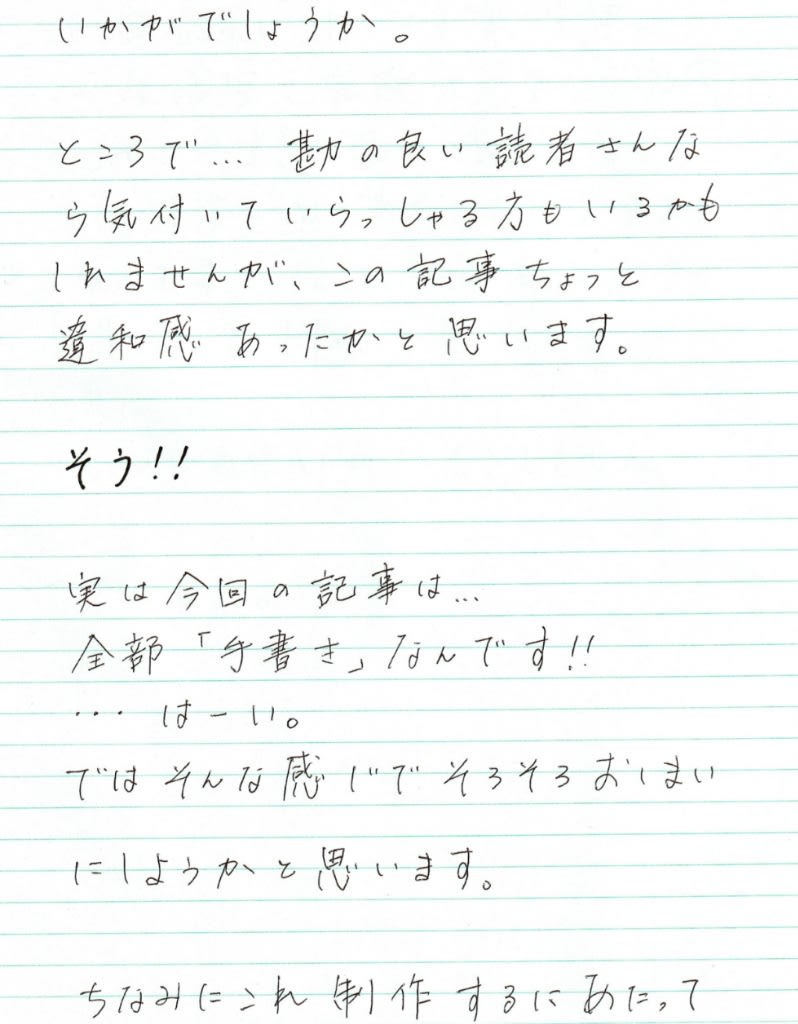 いかがでしょうか。
ところで… 勘の良い読者さんな
ら気付いていらっしゃる方もいるかも
しれませんが、この記事ちょっと
違和感あったかと思います。
そう!!
実は今回の記事は…
全部「手書き」なんです!!
… はーい。
ではそんな感じでそろそろおしまい
にしようかと思います。
ちなみにこれ制作するにあたって